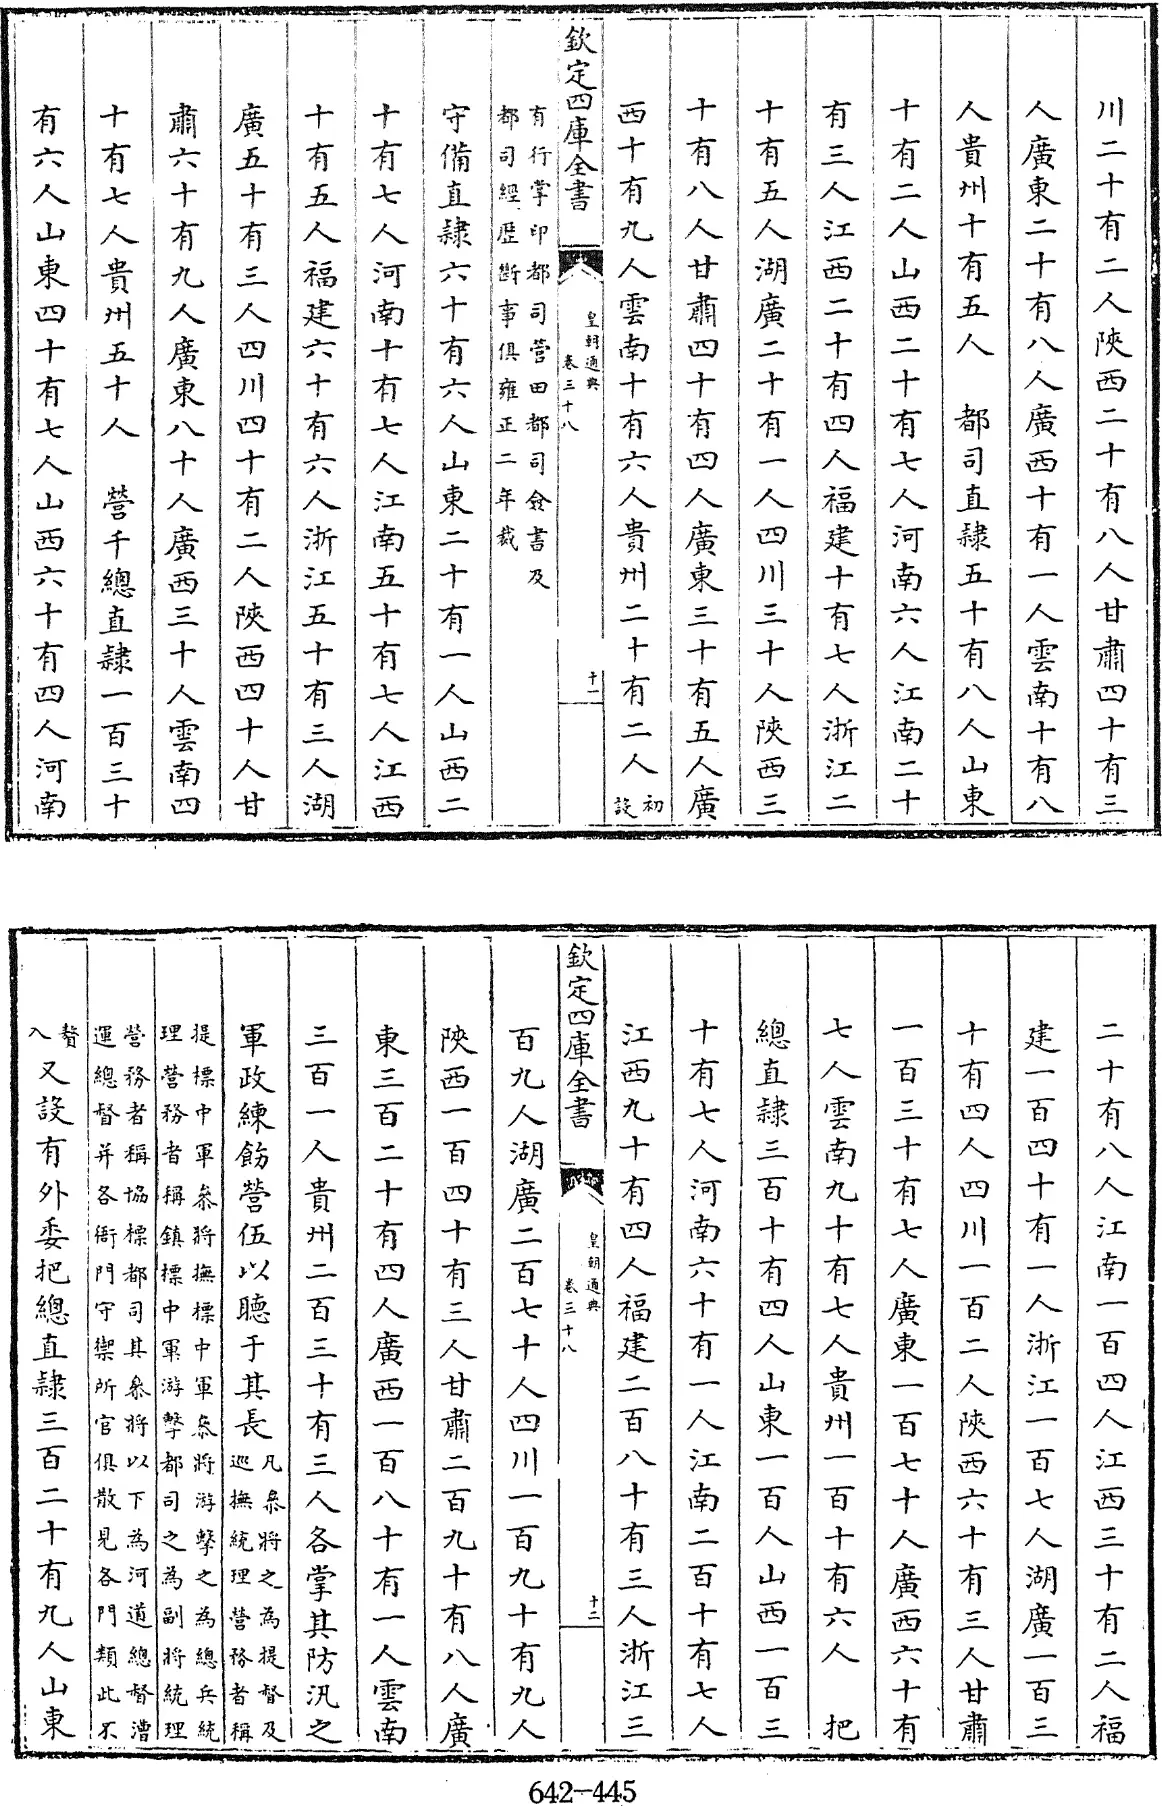 川二十有二人陜西二十有八人甘肅四十有三
人廣東二十有八人廣西十有一人雲南十有八
人貴州十有五人　都司直隸五十有八人山東
十有二人山西二十有七人河南六人江南二十
有三人江西二十有四人福建十有七人浙江二
十有五人湖廣二十有一人四川三十人陜西三
十有八人甘肅四十有四人廣東三十有五人廣
西十有九人雲南十有六人貴州二十有二人初設
欽定四庫全書
皇朝通典
卷三十八
十一
有行掌印都司營田都司僉書及
都司經歴斷事俱雍正二年裁
守備直隸六十有六人山東二十有一人山西二
十有七人河南十有七人江南五十有七人江西
十有五人福建六十有六人浙江五十有三人湖
廣五十有三人四川四十有二人陜西四十人甘
肅六十有九人廣東八十人廣西三十人雲南四
十有七人貴州五十人　營千總直隸一百三十
有六人山東四十有七人山西六十有四人河南
二十有八人江南一百四人江西三十有二人福
建一百四十有一人浙江一百七人湖廣一百三
十有四人四川一百二人陜西六十有三人甘肅
一百三十有七人廣東一百七十人廣西六十有
七人雲南九十有七人貴州一百十有六人　把
總直隸三百十有四人山東一百人山西一百三
十有七人河南六十有一人江南二百十有七人
江西九十有四人福建二百八十有三人浙江三
欽定四庫全書
皇朝通典
卷三十八
十二
百九人湖廣二百七十人四川一百九十有九人
陜西一百四十有三人甘肅二百九十有八人廣
東三百二十有四人廣西一百八十有一人雲南
三百一人貴州二百三十有三人各掌其防汛之
軍政練飭營伍以聽于其長
凡叅將之為提督及
巡撫統理營務者稱
提標中軍叅將撫標中軍叅將游擊之為總兵統
理營務者稱鎮標中軍游擊都司之為副將統理
營務者稱協標都司其叅將以下為河道總督漕
運總督并各衙門守禦所官俱散見各門類此不
贅
入又設有外委把總直隸三百二十有九人山東
642-445